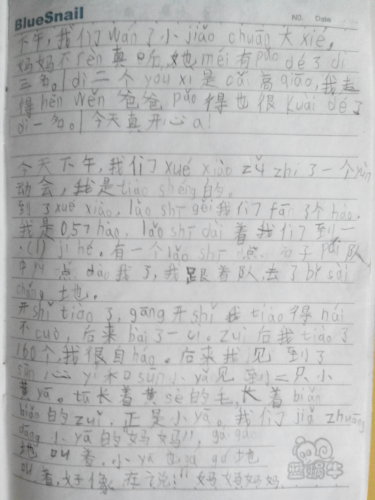 BlueSnail
NO. Date
下午，我们wán了小jiǎo chuān大xié，
妈妈不rèn真 ，她méi有pǎo dé了dì
三名。dì二个yóu xì是cǎi高qiāo，我走
得hěn wěn爸爸pǎo得也很kuài dé了
dì一名。今天真开心a！
今天下午，我们xué xiào zǔ zhī了一个yùn
动会，我是tiào shéng的。
到了xué xiào，lǎo shī gěi我们fā了个hào，
我是057hào，lǎo shī dài着我们到一
jí hé。有一个lǎo shī点 duì
点dào我了，我跟着队去了bǐ sài
chǎng地。
开shǐ tiào了，gāng开shǐ我tiào得hái
不cuò，后来 了一 。zuì后我tiào了
160个我很自háo。后来我 见到了
sūn sūn小yā见到二只小
黄yā。tā长着黄sè的毛，长着biǎn
biǎn的zuǐ，正是小yā。我们jiǎ zhuāng
dāng小yā的妈妈，gā gā
地叫着，小yā也gā gā地
叫着，好像在说：妈妈妈妈
蓝蜗牛